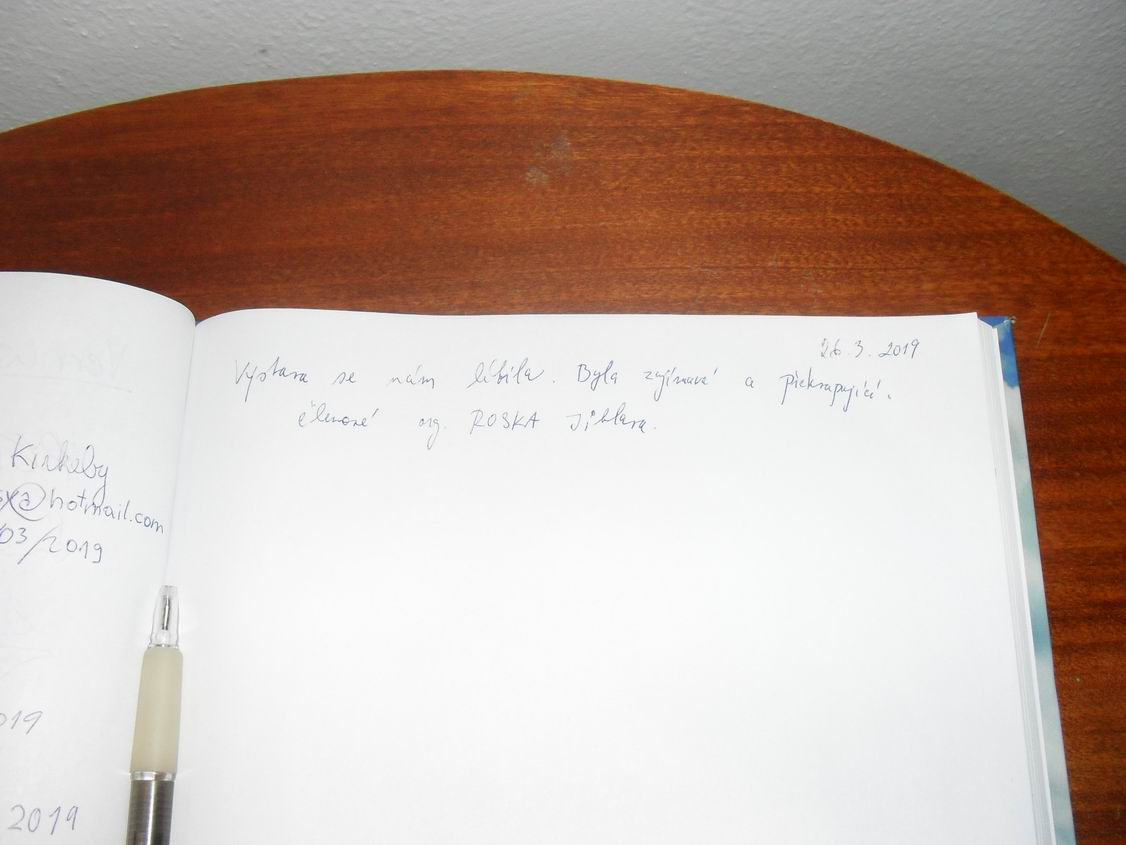 Kirkeby
sx@hotmail.com
/03/2019
019
2019
26.3.2019
Výstava se nám líbila. Byla zajímavá a překvapující.
členové org. ROSKA Jihlava.